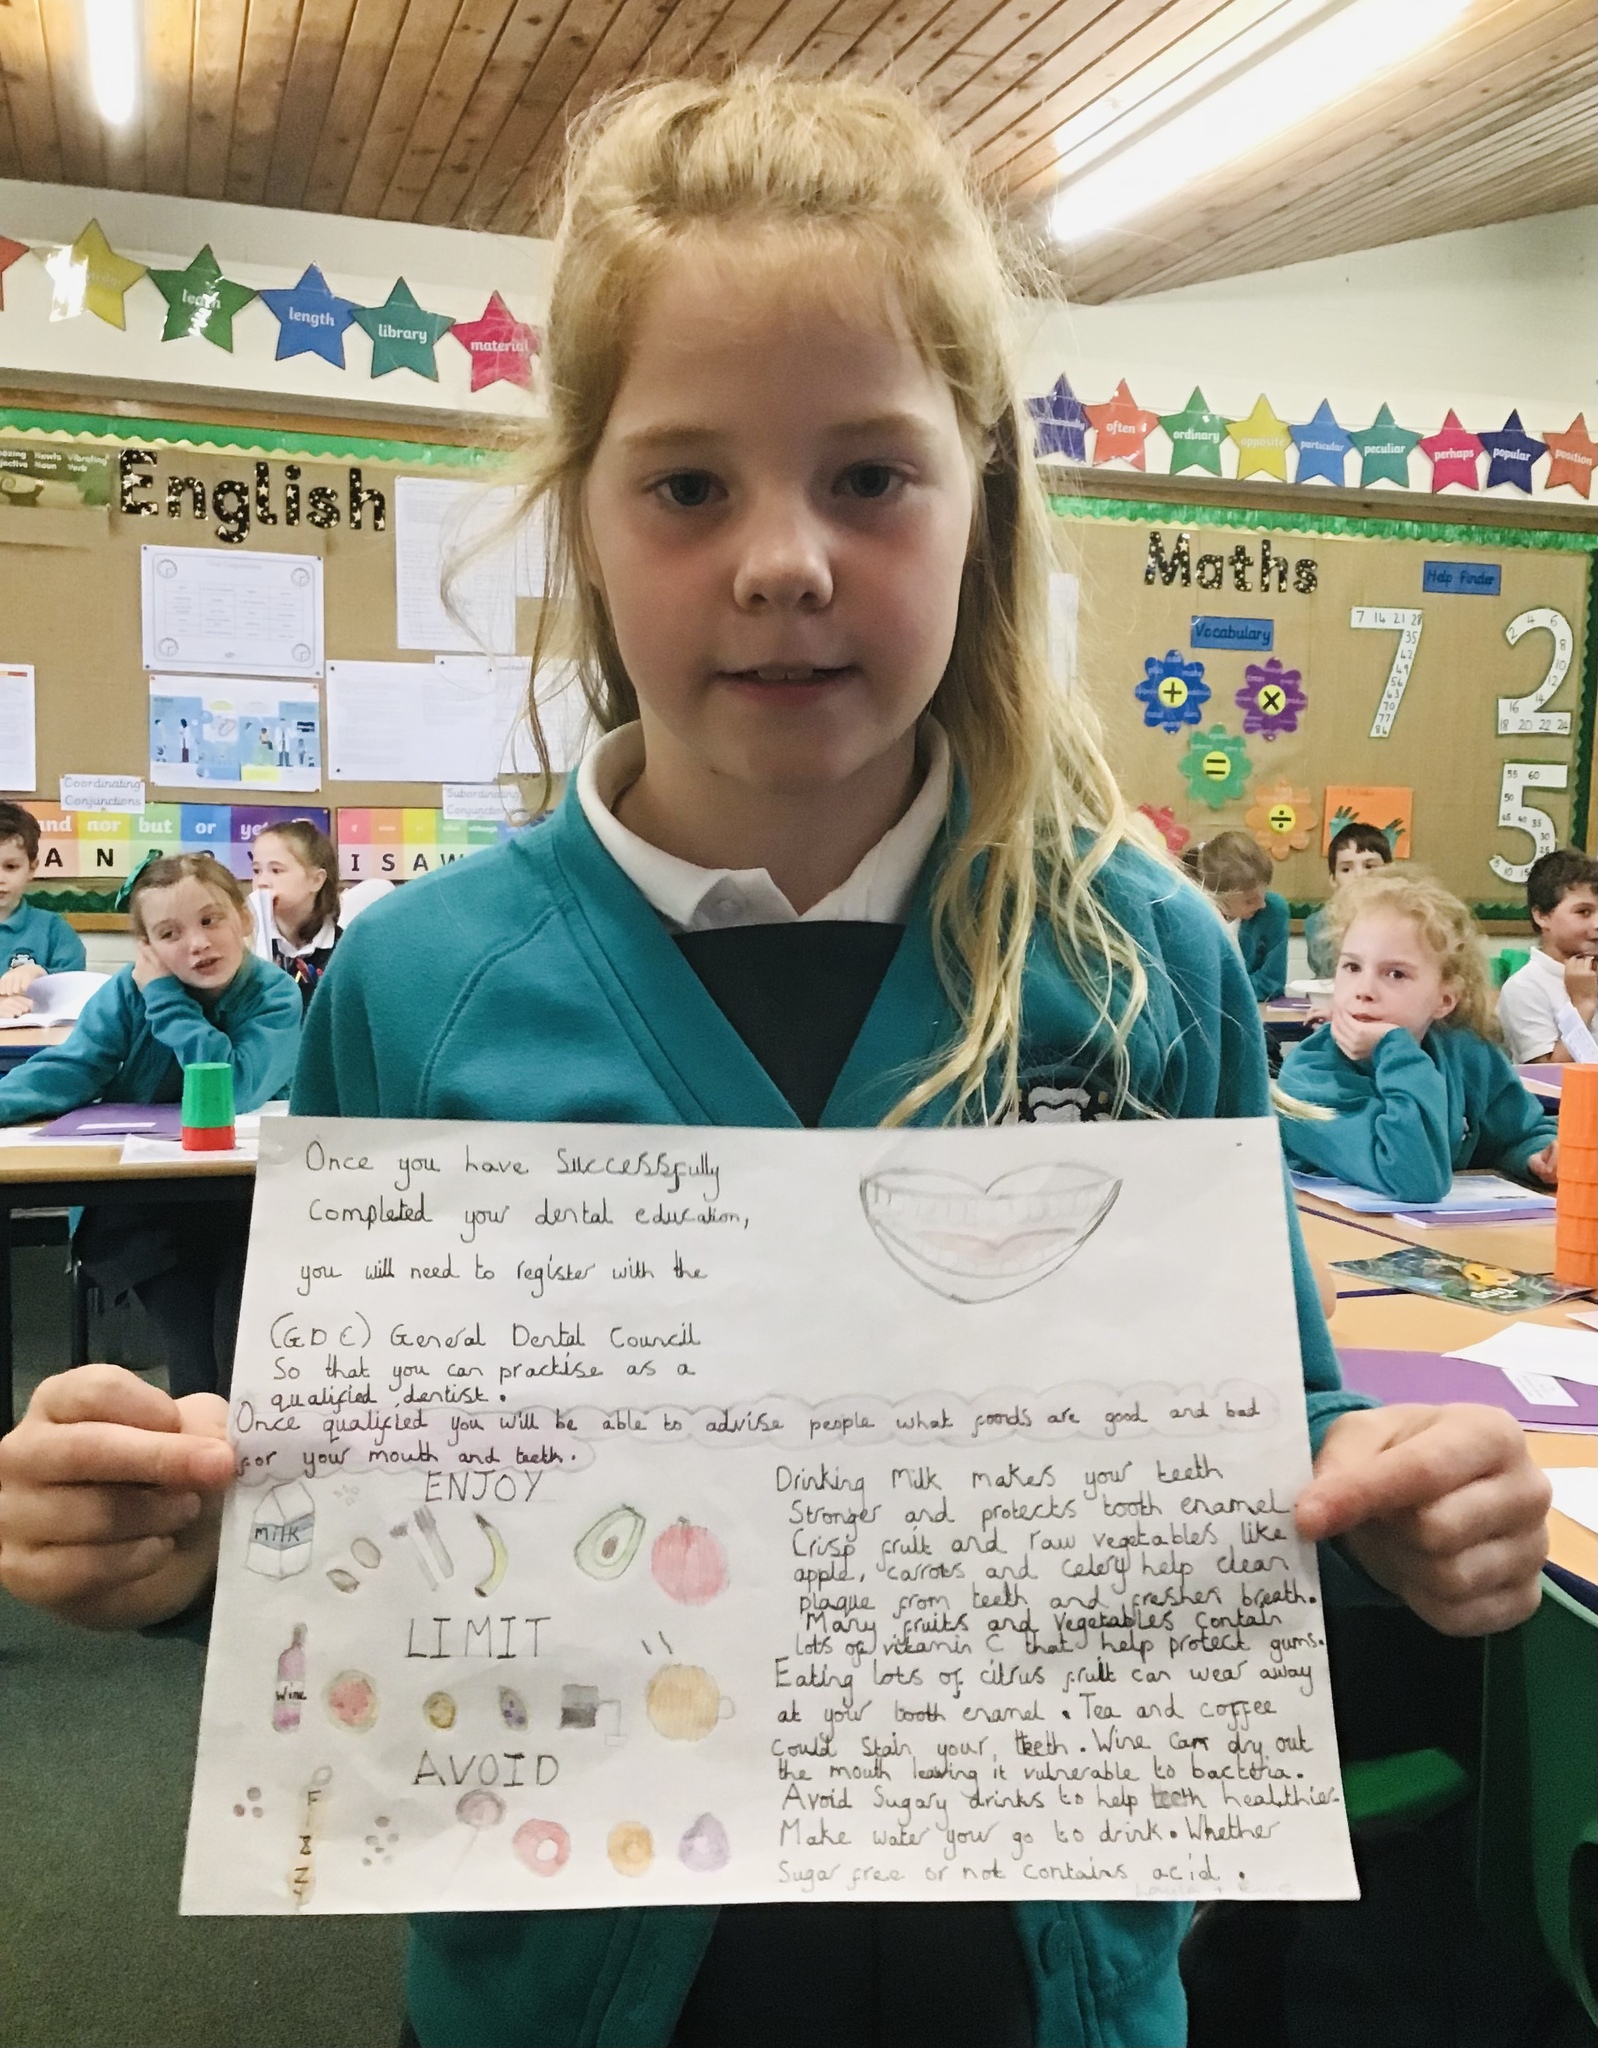 learn
length
library
material
often
ordinary
opposite
particular
peculiar
perhaps
popular
position
English
Maths
Help Finder
Vocabulary
7 14 21 28
35
42
49
56
63
70
77
84
2 4 6
8
10
12
14
16
18 20 22 24
55 60
50
45 40 35
30
25
10 15
+
×
=
÷
Coordinating
Conjunctions
Subordinating
Conjunctions
and nor but or yet
A N B O Y
I S A W
Once you have Successfully
Completed your dental education,
you will need to register with the
(GDC) General Dental Council
So that you can practise as a
qualified dentist.
Once qualified you will be able to advise people what foods are good and bad
for your mouth and teeth.
ENJOY
MILK
LIMIT
Wine
AVOID
FIZZY
Drinking Milk makes your teeth
Stronger and protects tooth enamel
Crisp fruit and raw vegetables like
apple, carrots and Celery help clean
plaque from teeth and freshen breath.
Many fruits and vegetables contain
lots of vitamin C that help protect gums.
Eating lots of citrus fruit can wear away
at your tooth enamel. Tea and coffee
could stain your teeth. Wine can dry out
the mouth leaving it vulnerable to bactria.
Avoid Sugary drinks to help teeth healthier.
Make water your go to drink. Whether
Sugar free or not contains acid.